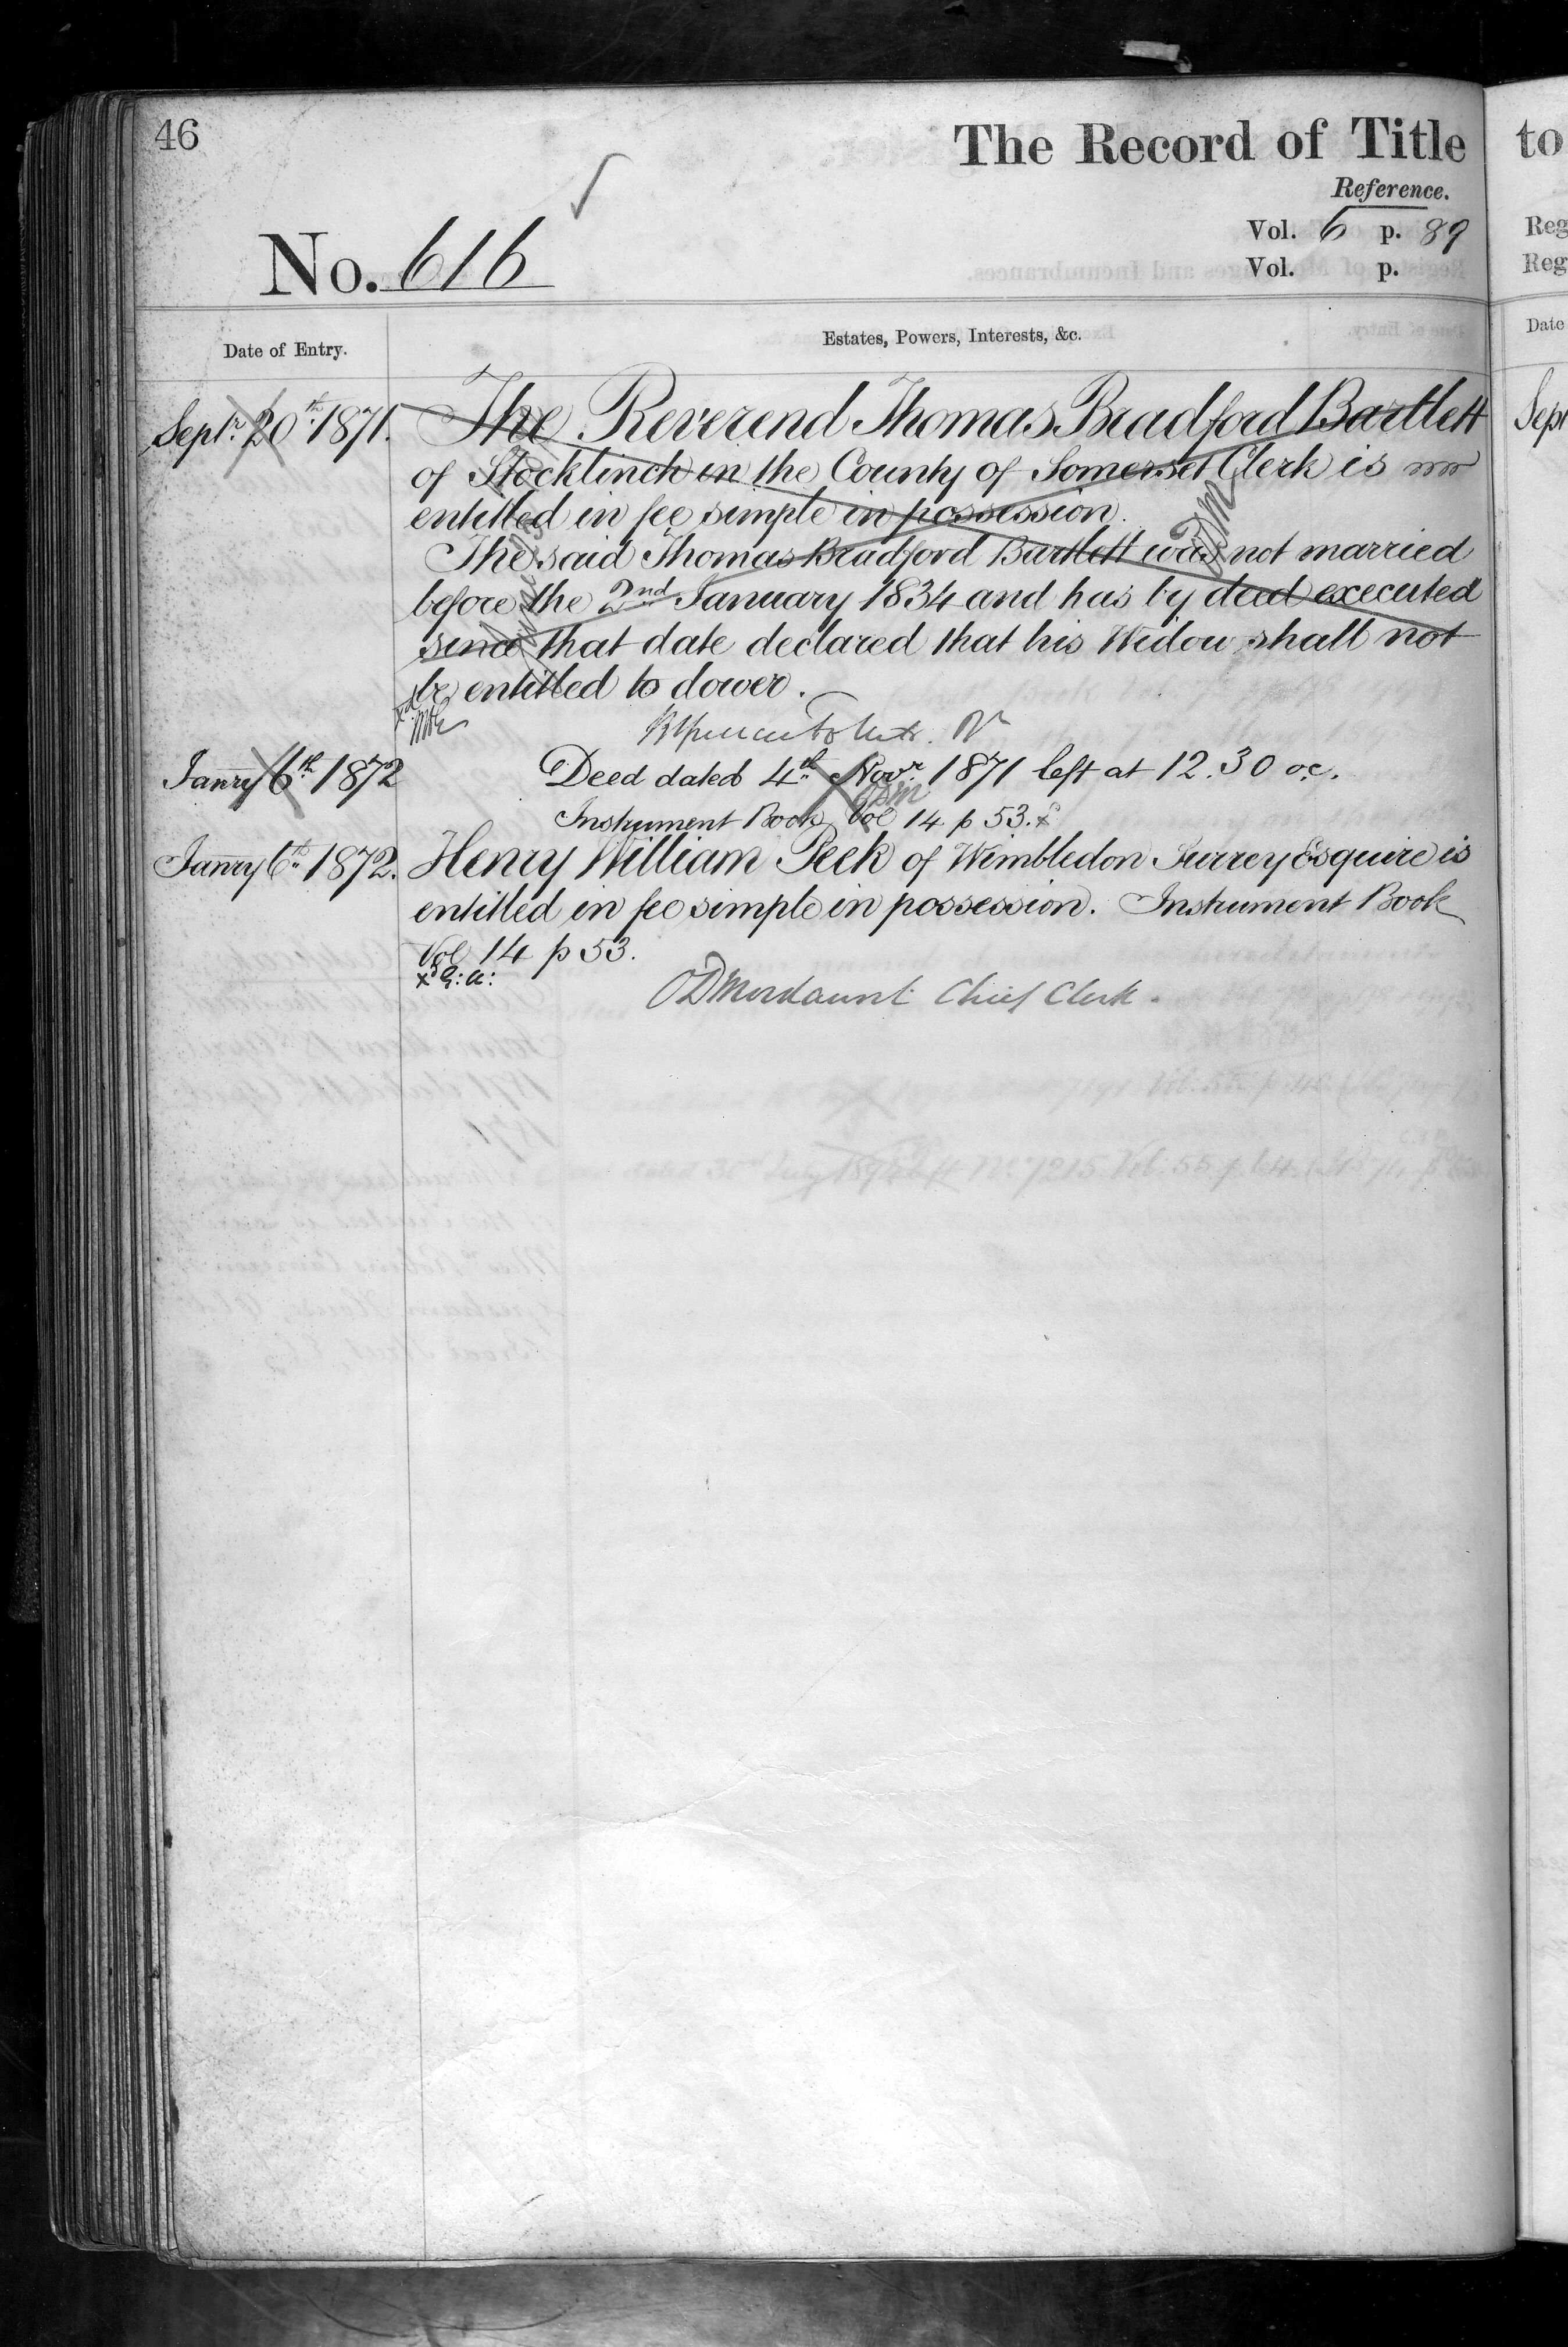 46
The Record of Title
Reference.
Vol. 6 p. 89
Vol. p.
No. 616
Date of Entry.
Estates, Powers, Interests, &c.
Septr. 20th 1871. The Reverend Thomas Bradford Bartlett
of Stocklinch in the County of Somerset Clerk is
entitled in fee simple in possession.
The said Thomas Bradford Bartlett was not married
before the 2nd January 1834 and has by deed executed
since that date declared that his Widow shall not
be entitled to dower.
Janry 6th 1872 Deed dated 4th Novr. 1871 left at 12.30 oc.
ODM
Instrument Book Vol 14 p 53. x
Janry 6th 1872. Henry William Peek of Wimbledon Surrey Esquire is
entitled in fee simple in possession. Instrument Book
Vol 14 p 53.
xd G: a:
ODMordaunt Chief Clerk.
to
Reg
Reg
Date
Sept